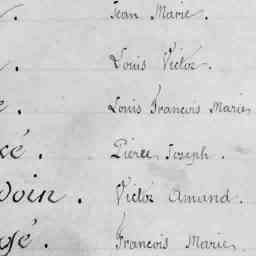 Jean Marie.
Louis Victor.
Louis Francois Marie
cé. Pierre Joseph.
doin. Victor Amand.
gé. Francois Marie.